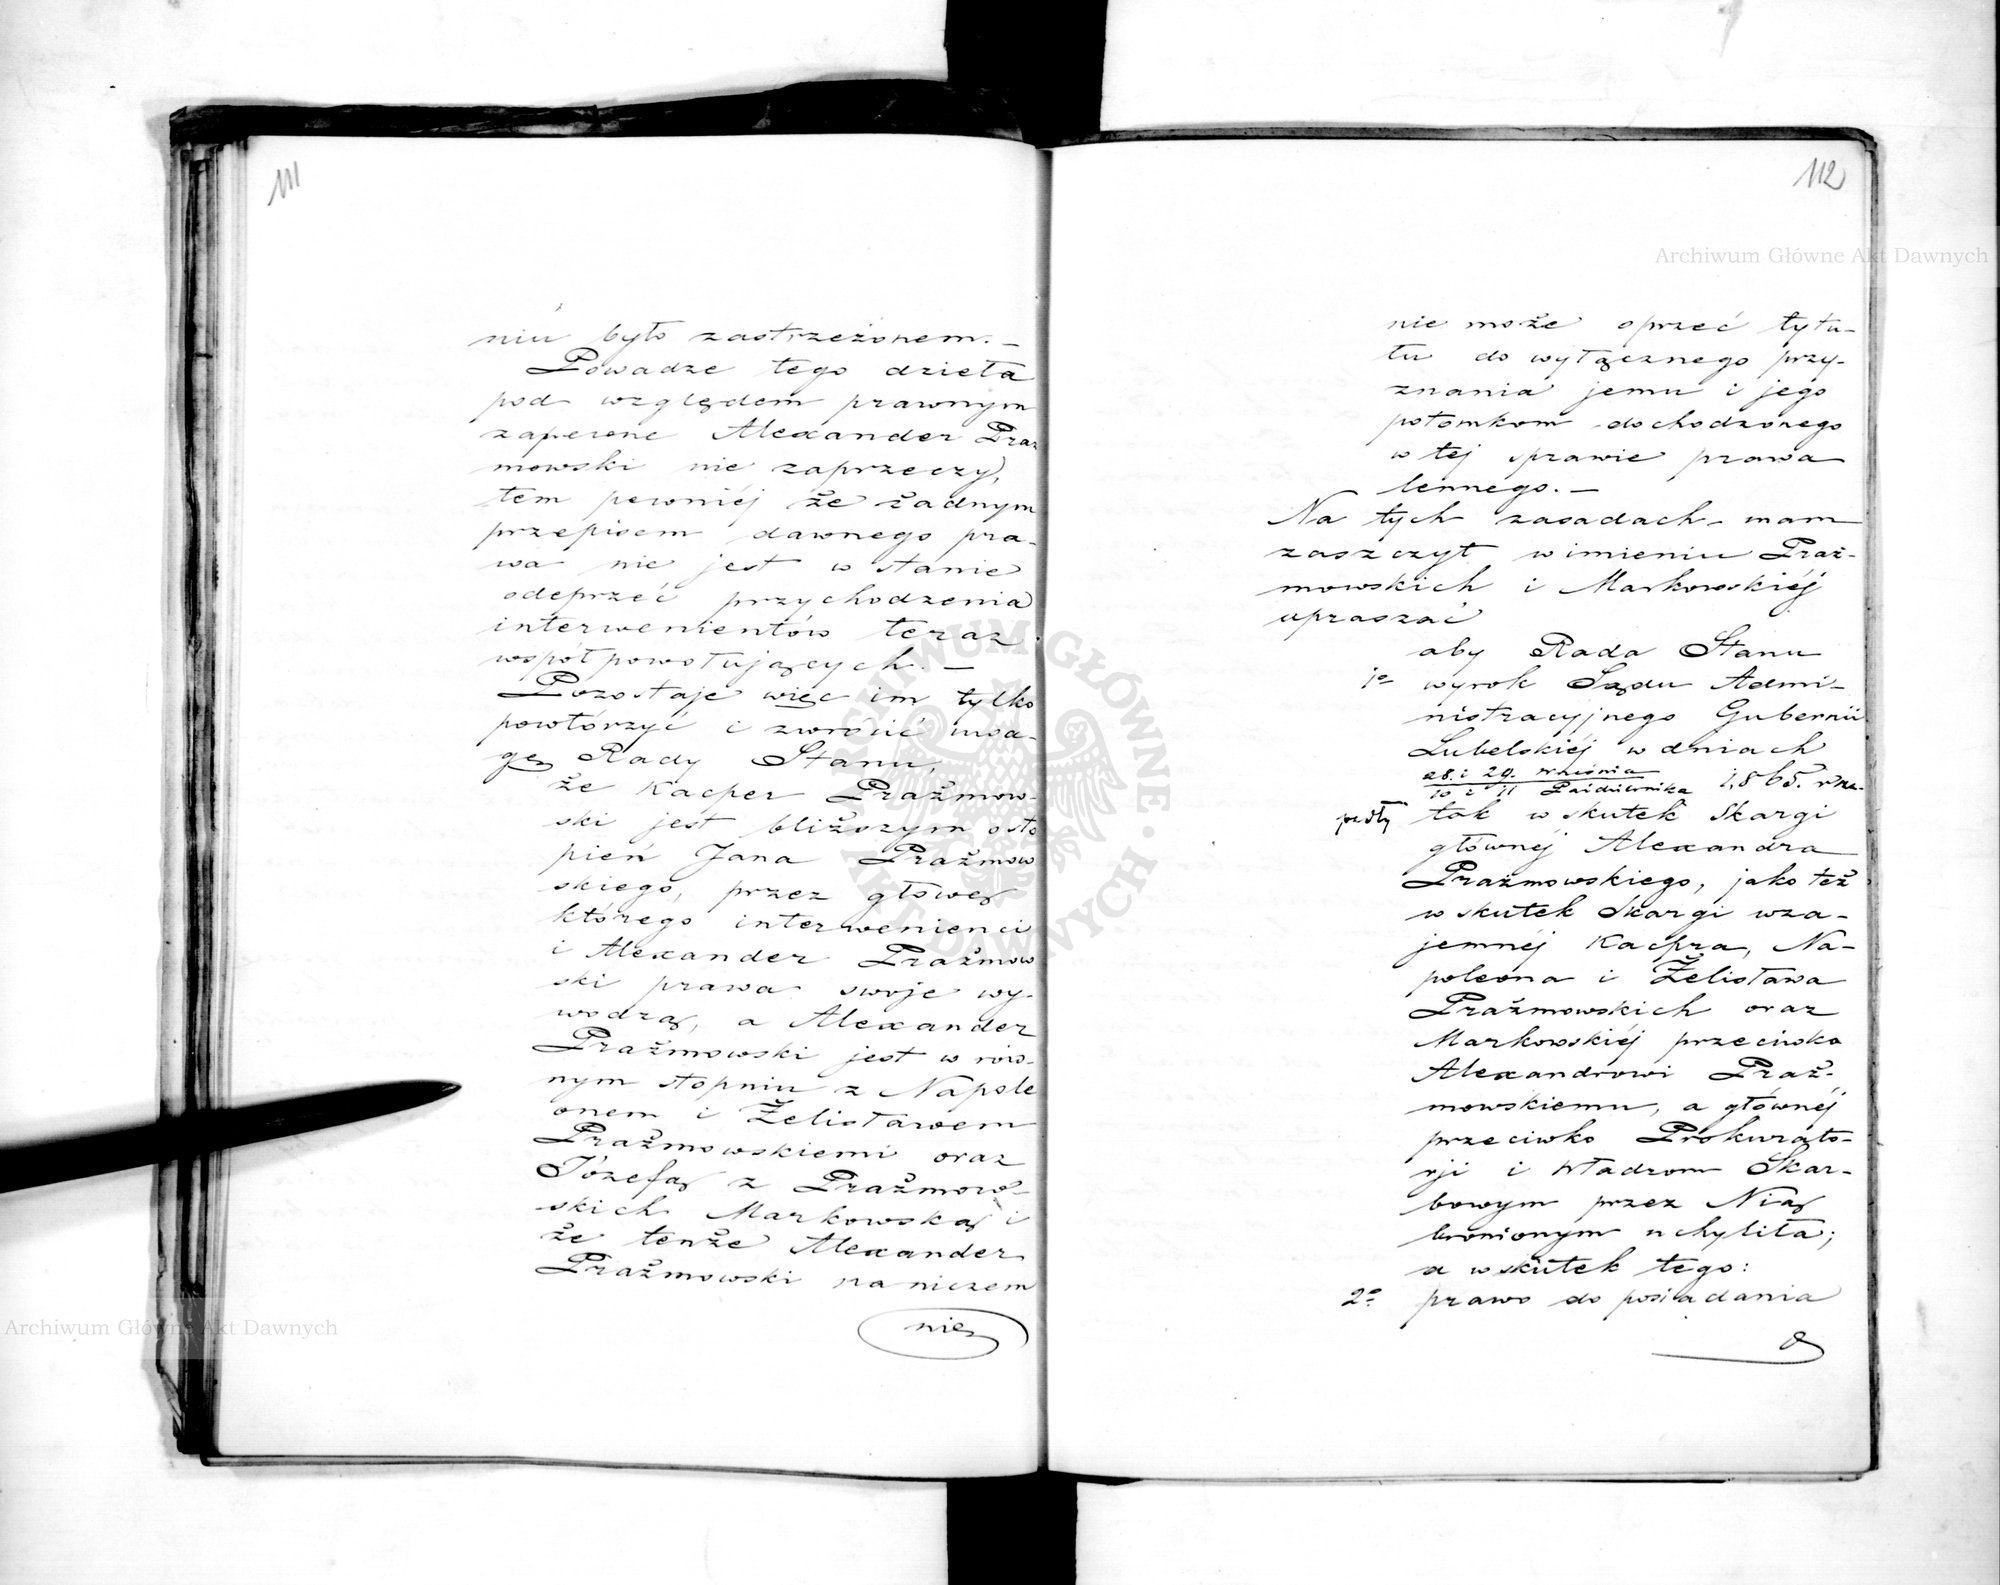 111
niu było zastrzeżonem. —
Powadze tego dzieła
pod względem prawnym
zapewne Alexander Praż
mowski nie zaprzeczy,
tem pewniéj że żadnym
przepisem dawnego pra-
wa nie jest w stanie
odeprzéć przychodzenia
interwenientów teraz
współpowołujących. —
Pozostaje więc im tylko
powtórzyć i zwrócić uwa-
gę Rady Stanu,
że Kacper Prażmow-
ski jest bliższym o sto
pień Jana Prażmow
skiego, przez głowę
którego interwenienci
i Alexander Prażmow
ski prawa swoje wy-
wodzą, a Alexander
Prażmowski jest w rów-
nym stopniu z Napole
onem i Żelisławem
Prażmowskiemi oraz
Józefą z Prażmow-
skich Markowską i
że tenże Alexander
Prażmowski na niczem
nie
112
nie może oprzeć tytu-
łu do wyłącznego przy-
znania jemu i jego
potomkom dochodzonego
w téj sprawie prawa
lennego. —
Na tych zasadach mam
zaszczyt w imieniu Praż-
mowskich i Markowskiéj
upraszać
aby Rada Stanu
1o wyrok Sądu Admi-
nistracyjnego Gubernii
Lubelskiéj w dniach
28. i 29. Września
10 i 11 Października 1,865. r za-
padły tak w skutek Skargi
głównéj Alexandra
Prażmowskiego, jako też
w skutek Skargi wza-
jemnéj Kacpra, Na-
poleona i Żelisława
Prażmowskich oraz
Markowskiéj przeciwko
Alexandrowi Praż-
mowskiemu, a głównéj
przeciwko Prokurato-
rji i Władzom Skar-
bowym przez Nią
bronionym uchyliła;
a w skutek tego:
2o prawo do posiadania
Archiwum Główne Akt Dawnych
Archiwum Główne Akt Dawnych
ARCHIWUM GŁÓWNE AKT DAWNYCH